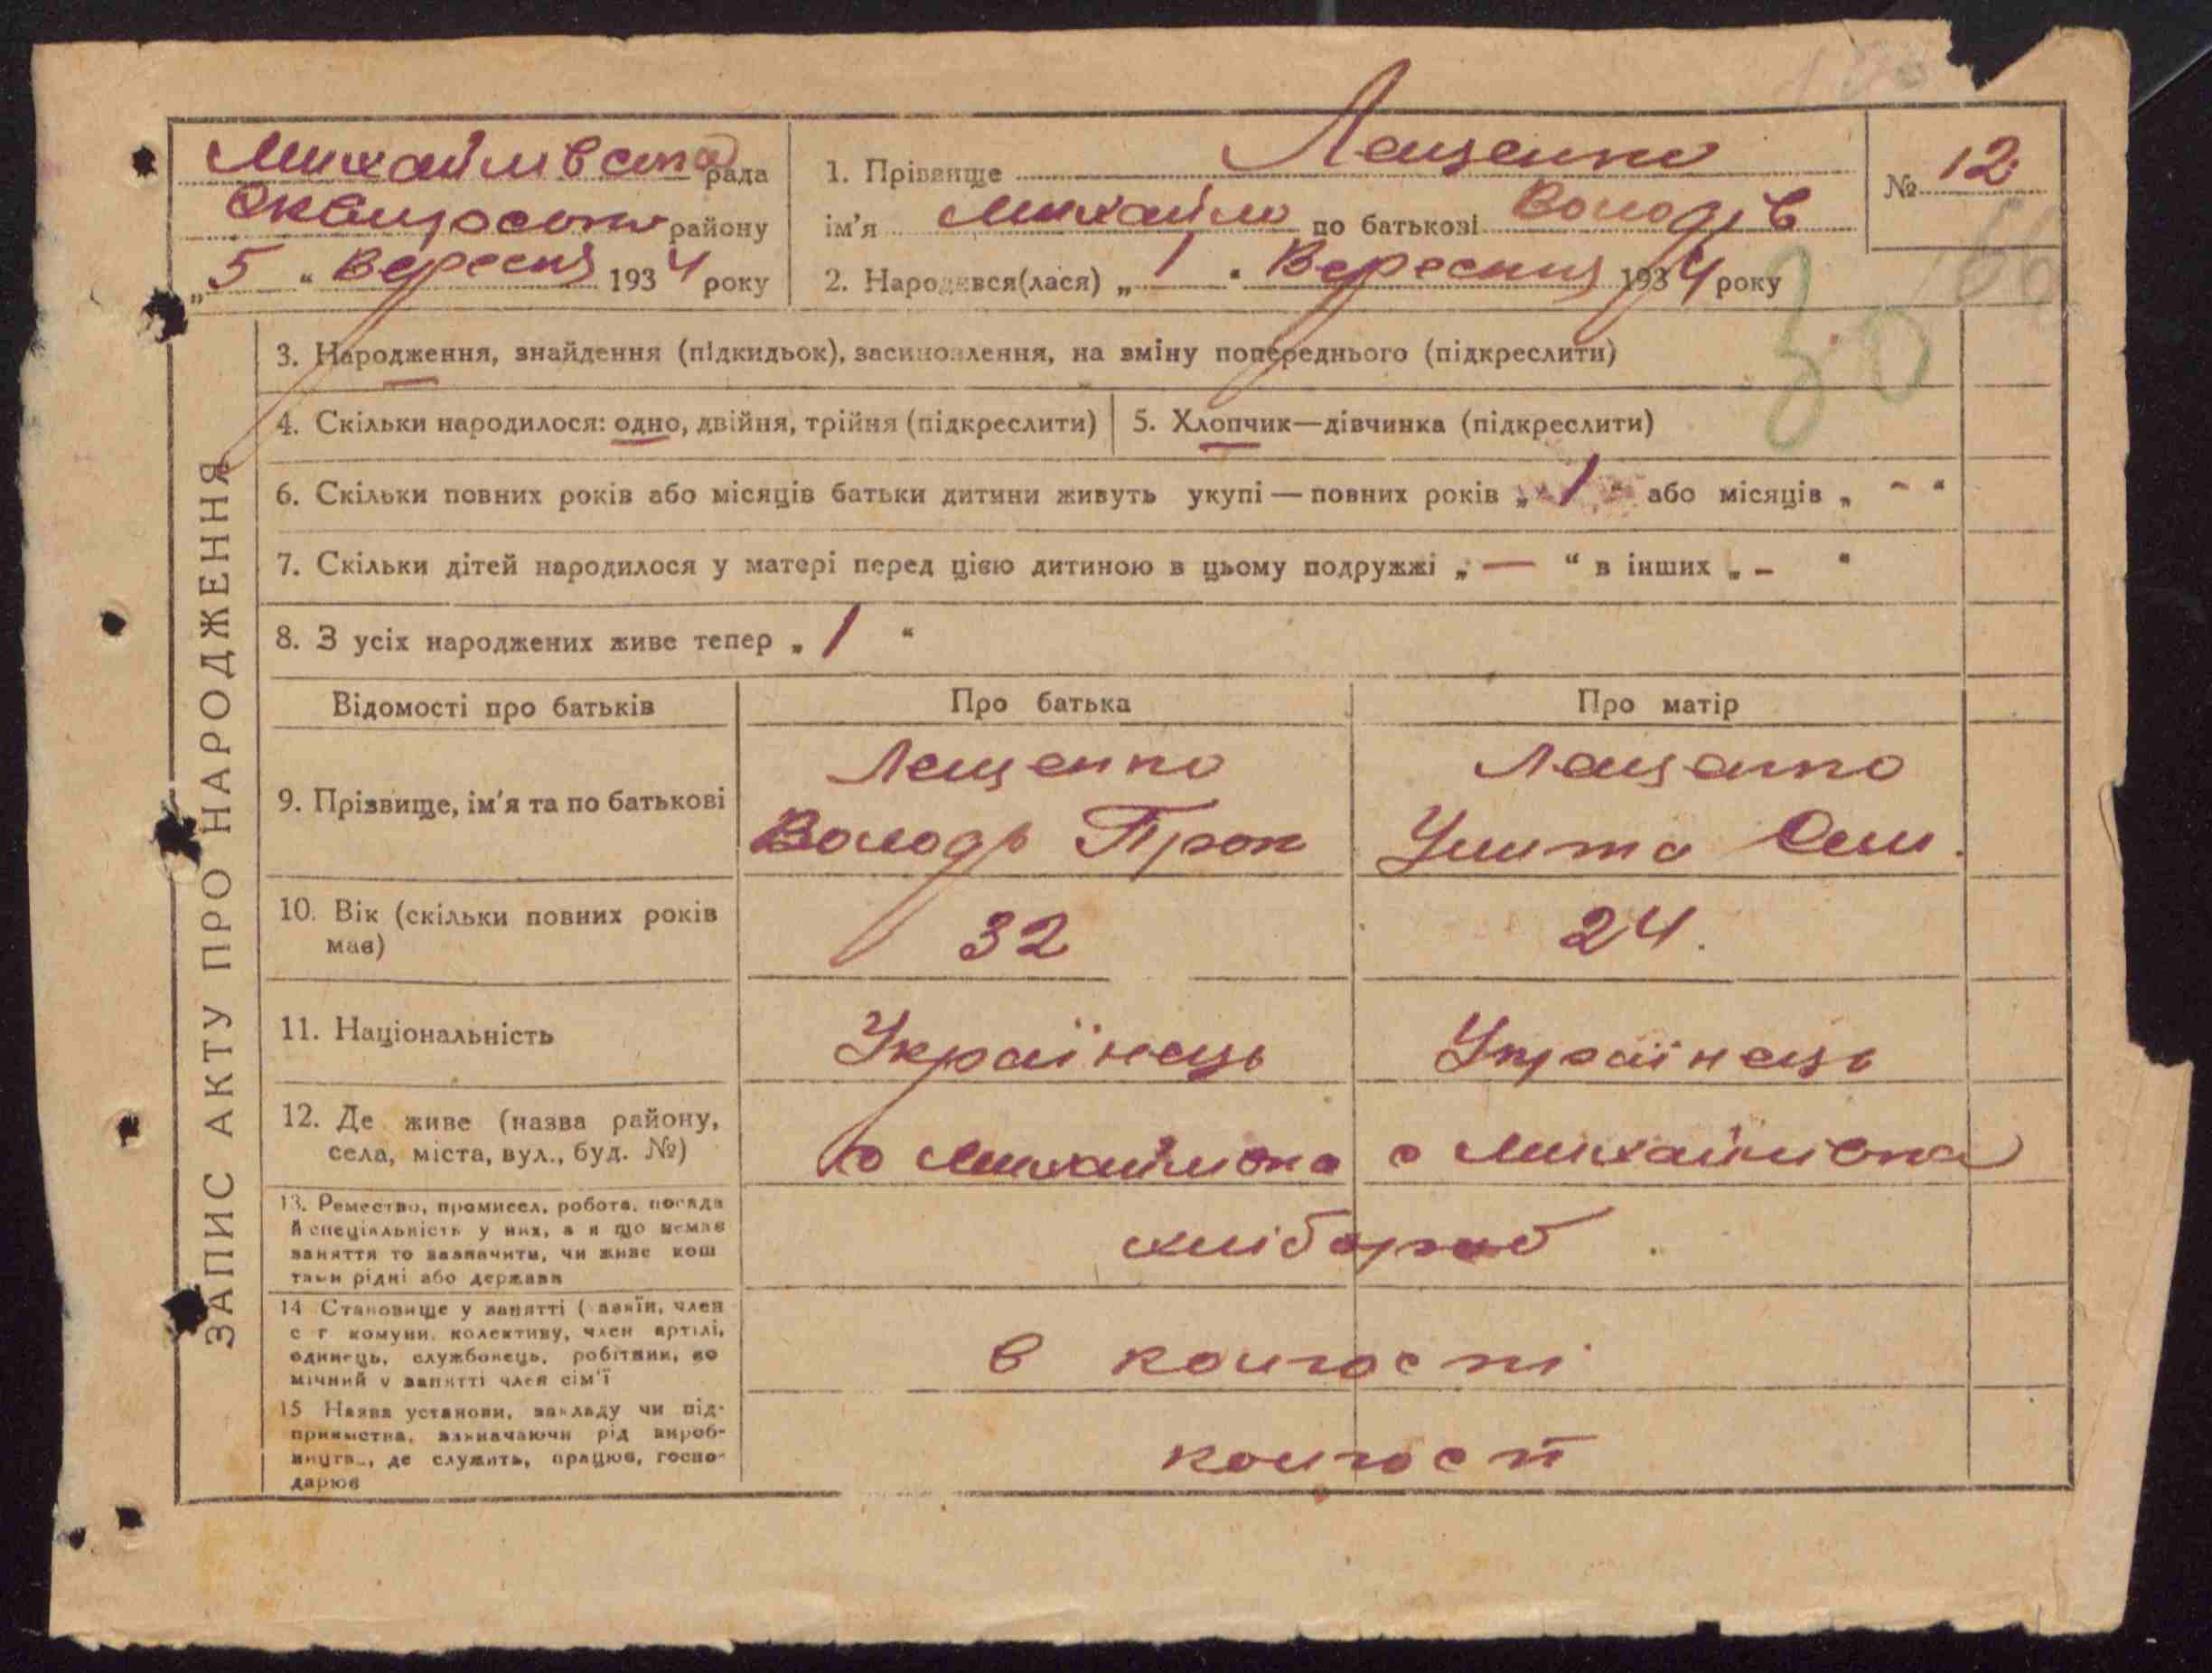 Михайлівська рада
Сквирського району
„ 5 “ Вересня 1934 року
1. Прізвище Лещенко
ім'я Михайло по батькові Володів
2. Народився(лася) „ 1 “ Вересния 1934 року
№ 12
30
66
ЗАПИС АКТУ ПРО НАРОДЖЕННЯ
3. Народження, знайдення (підкидьок), засиновлення, на зміну попереднього (підкреслити)
4. Скільки народилося: одно, двійня, трійня (підкреслити)
5. Хлопчик—дівчинка (підкреслити)
6. Скільки повних років або місяців батьки дитини живуть укупі — повних років „ 1 “ або місяців „ - “
7. Скільки дітей народилося у матері перед цією дитиною в цьому подружжі „ — “ в інших „ - “
8. З усіх народжених живе тепер „ 1 “
Відомості про батьків
Про батька
Про матір
9. Прізвище, ім'я та по батькові
Лещенко
Володь Прок
Лещенко
10. Вік (скільки повних років
має)
32
24.
11. Національність
Українець
Українець
12. Де живе (назва району,
села, міста, вул., буд. №)
с Михайлівка
с Михайлівка
13. Ремество, промисел, робота, посада
й спеціяльність у них, а я що немає
заняття то зазначити, чи живе кош
тами рідні або держави
хлібороб
14 Становище у занятті (хазяїн, член
с г комуни, колективу, член артілі,
одинець, службовець, робітник, по
мічний у занятті член сім'ї
в колгоспі
15 Назва установи, закладу чи під-
приємства, зазначаючи рід вироб-
ництва, де служить, працює, госпо-
дарює
колгосп